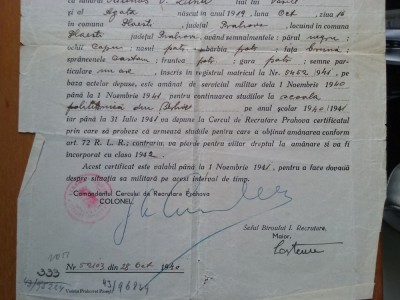 și Agata născut în anul 1919 luna Oct ziua 15
în comuna Ploesti, județul Prahova, locuind în comuna
Ploesti județul Prahova, având semnalmentele: părul negru;
ochii nasul potr bărbia potr fața brună
sprâncenele Castan; fruntea potr gura potr; semne par-
ticulare nu are, înscris în registrul matricol la Nr.
baza actelor depuse, este amânat de serviciul militar dela 1 Noembrie 1940
până la 1 Noembrie 1941, pentru continuarea studiilor la școala
politehnică din pe anul școlar 1940/1941
iar până la 31 Iulie 1941 va depune la Cercul de Recrutare Prahova certificatul
prin care să probeze că urmează studiile pentru care a obținut amânarea conform
art. 72 R. L. R.; contrariu, va pierde pentru viitor dreptul la amânare și va fi
încorporat cu clasa 1942.
Acest certificat este valabil până la 1 Noembrie 1941, pentru a face dovadă
despre situația sa militară pe acest interval de timp.
Comandantul Cercului de Recrutare Prahova
COLONEL,
Șeful Biroului I. Recrutare,
Maior,
Nr 59103 din 28 Oct 1940
333